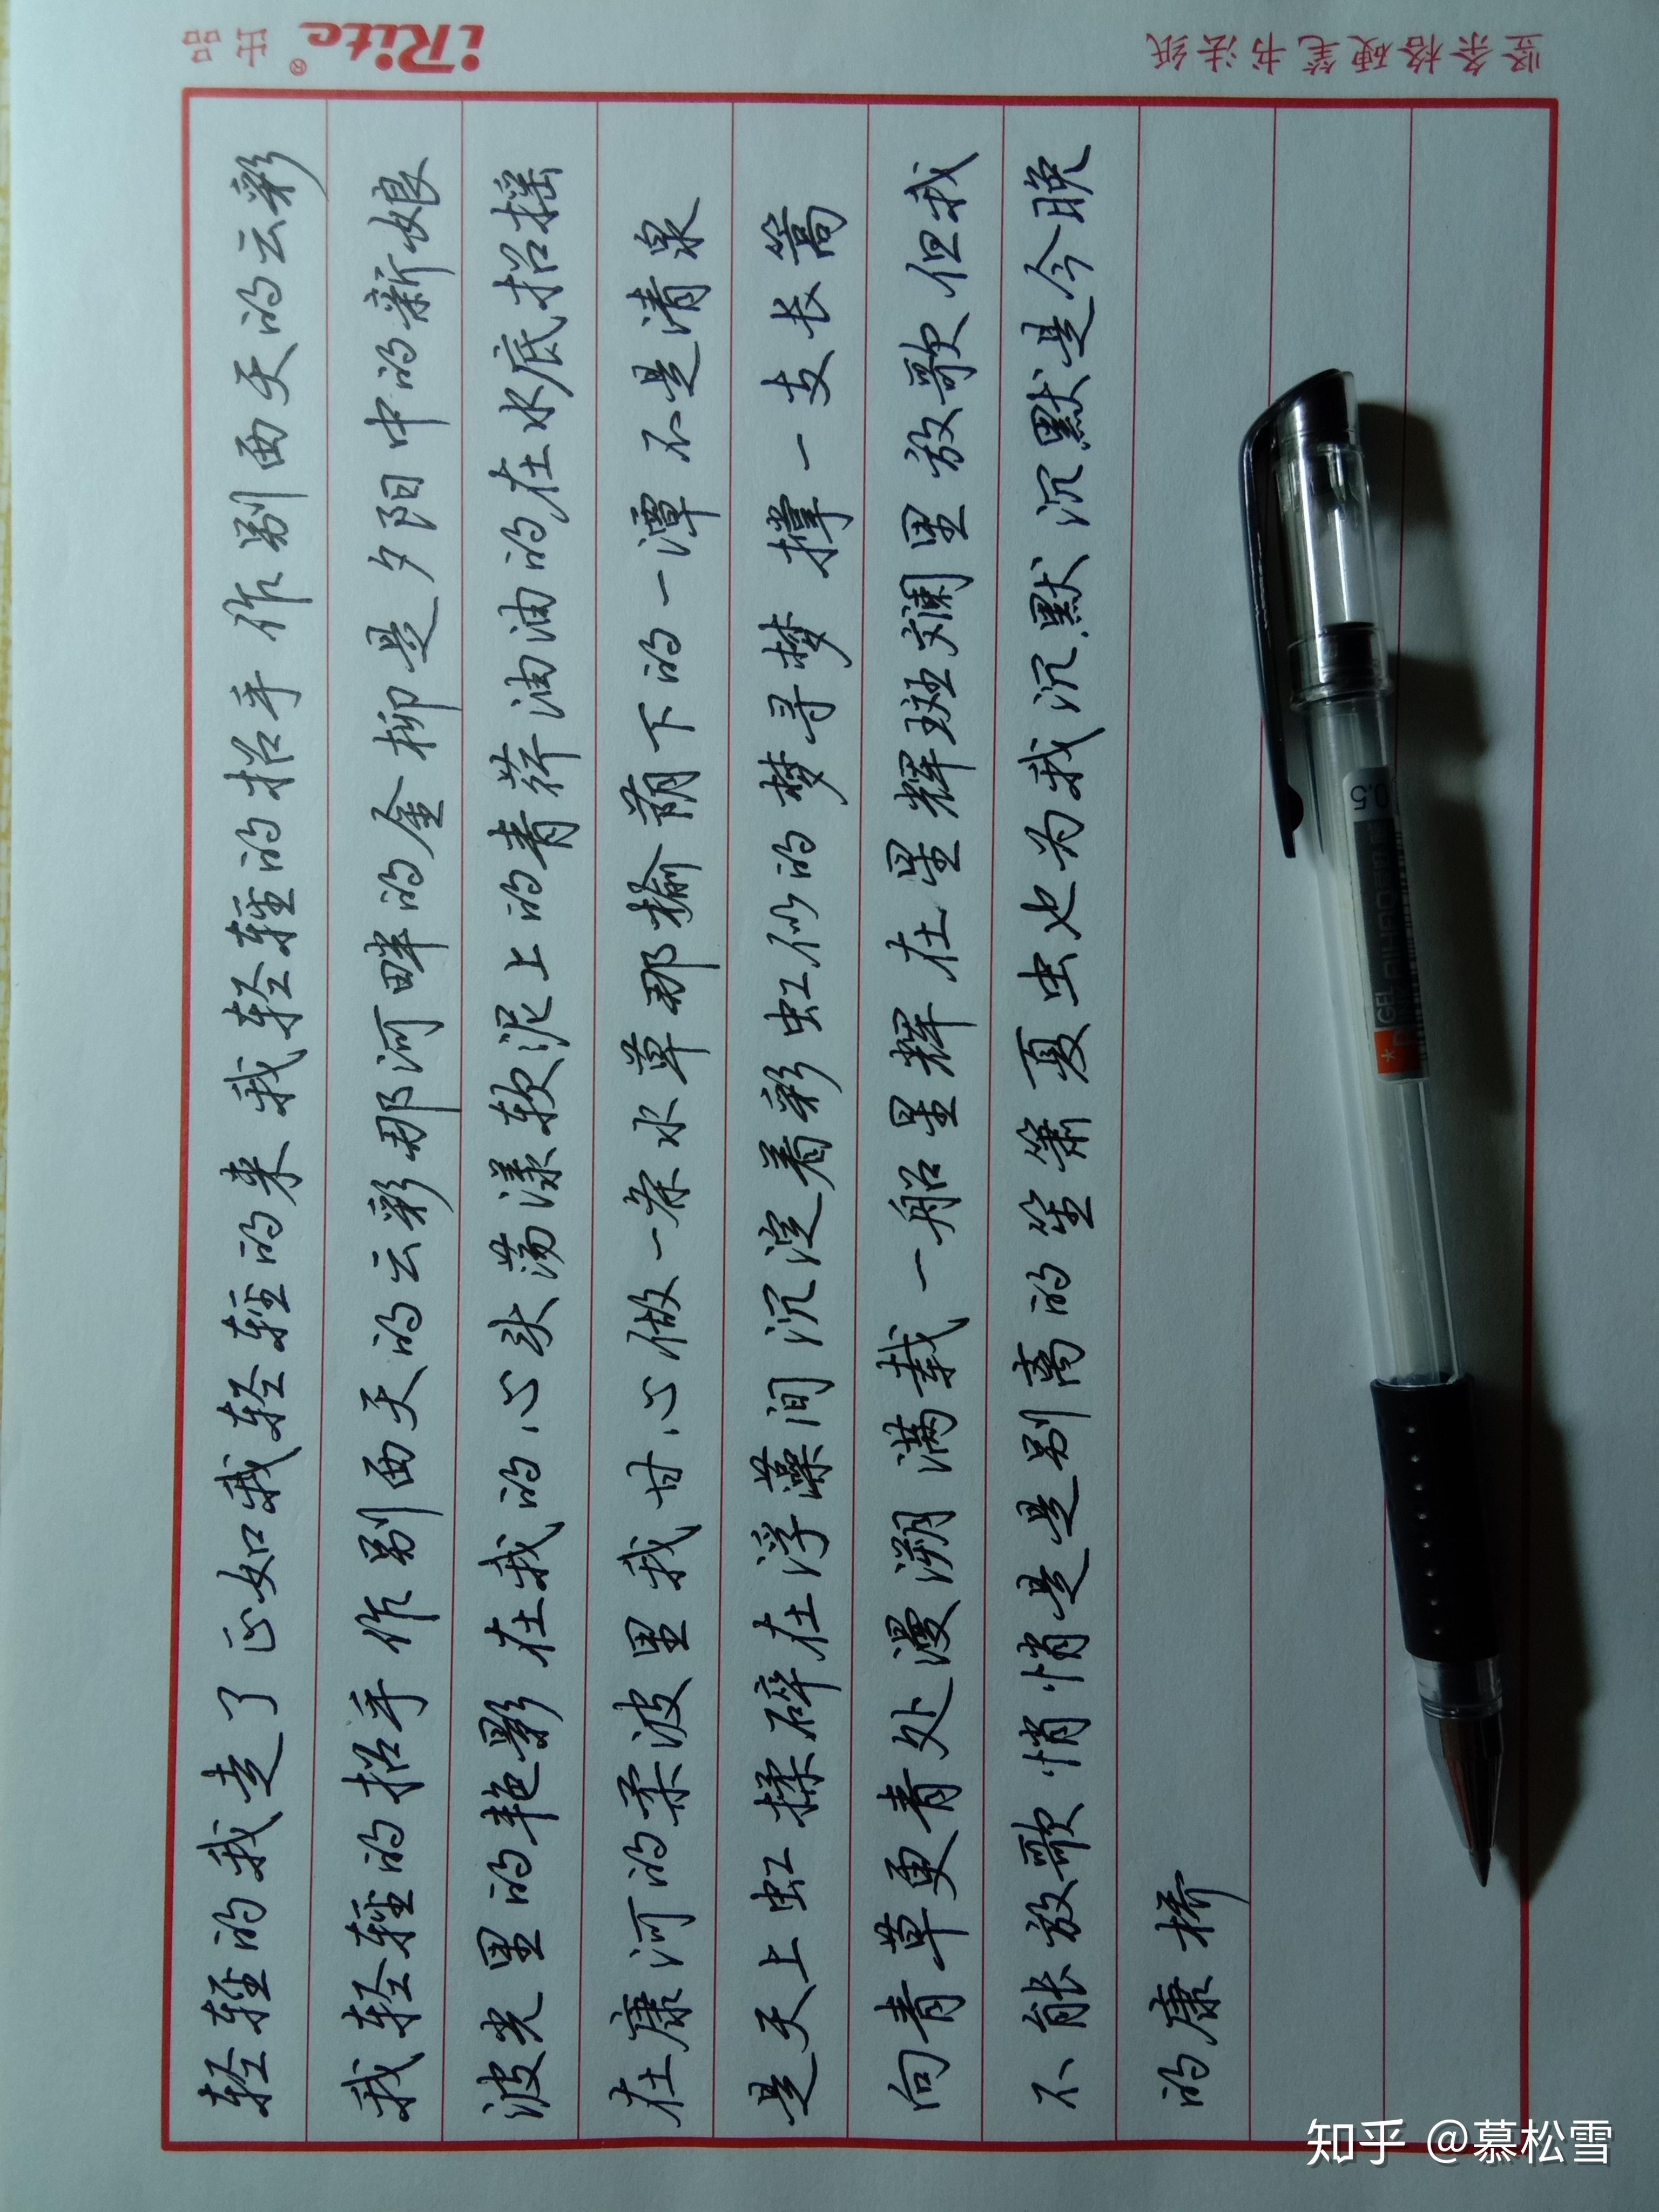 竖条格硬笔书法纸
iRite® 出品
轻轻的我走了正如我轻轻的来我轻轻的招手作别西天的云彩
我轻轻的招手作别西天的云彩那河畔的金柳是夕阳中的新娘
波光里的艳影在我的心头荡漾软泥上的青荇油油的在水底招摇
在康河的柔波里我甘心做一条水草那榆荫下的一潭不是清泉
是天上虹揉碎在浮藻间沉淀着彩虹似的梦寻梦撑一支长篙
向青草更青处漫溯满载一船星辉在星辉斑斓里放歌但我
不能放歌悄悄是是别离的笙箫夏虫也为我沉默沉默是今晚
的康桥
0.5
GEL
知乎 @慕松雪